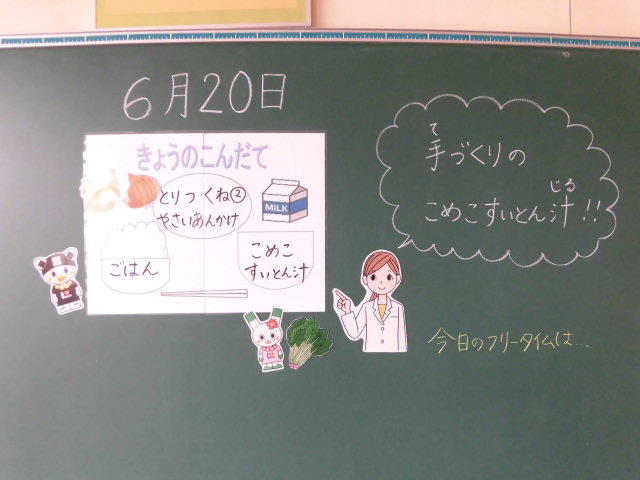 6月20日
きょうのこんだて
とりつくね②
やさいあんかけ
MILK
ごはん
こめこ
すいとん汁
て
手づくりの
じる
こめこすいとん汁!!
今日のフリータイムは...